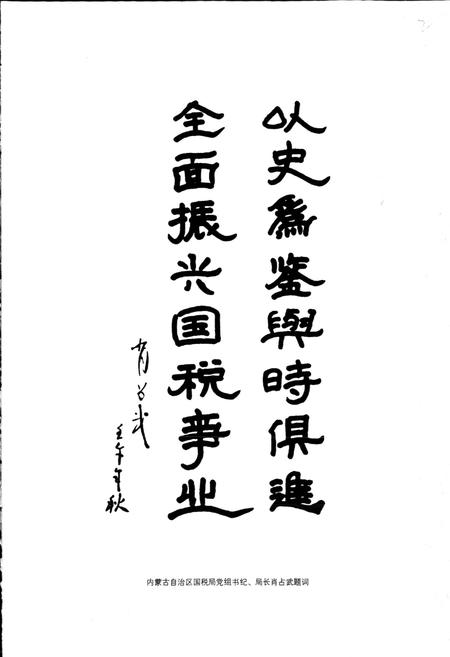 以史爲鉴與時俱進
全面振兴国税事业
肖占武
壬午年秋
内蒙古自治区国税局党组书纪、局长肖占武题词